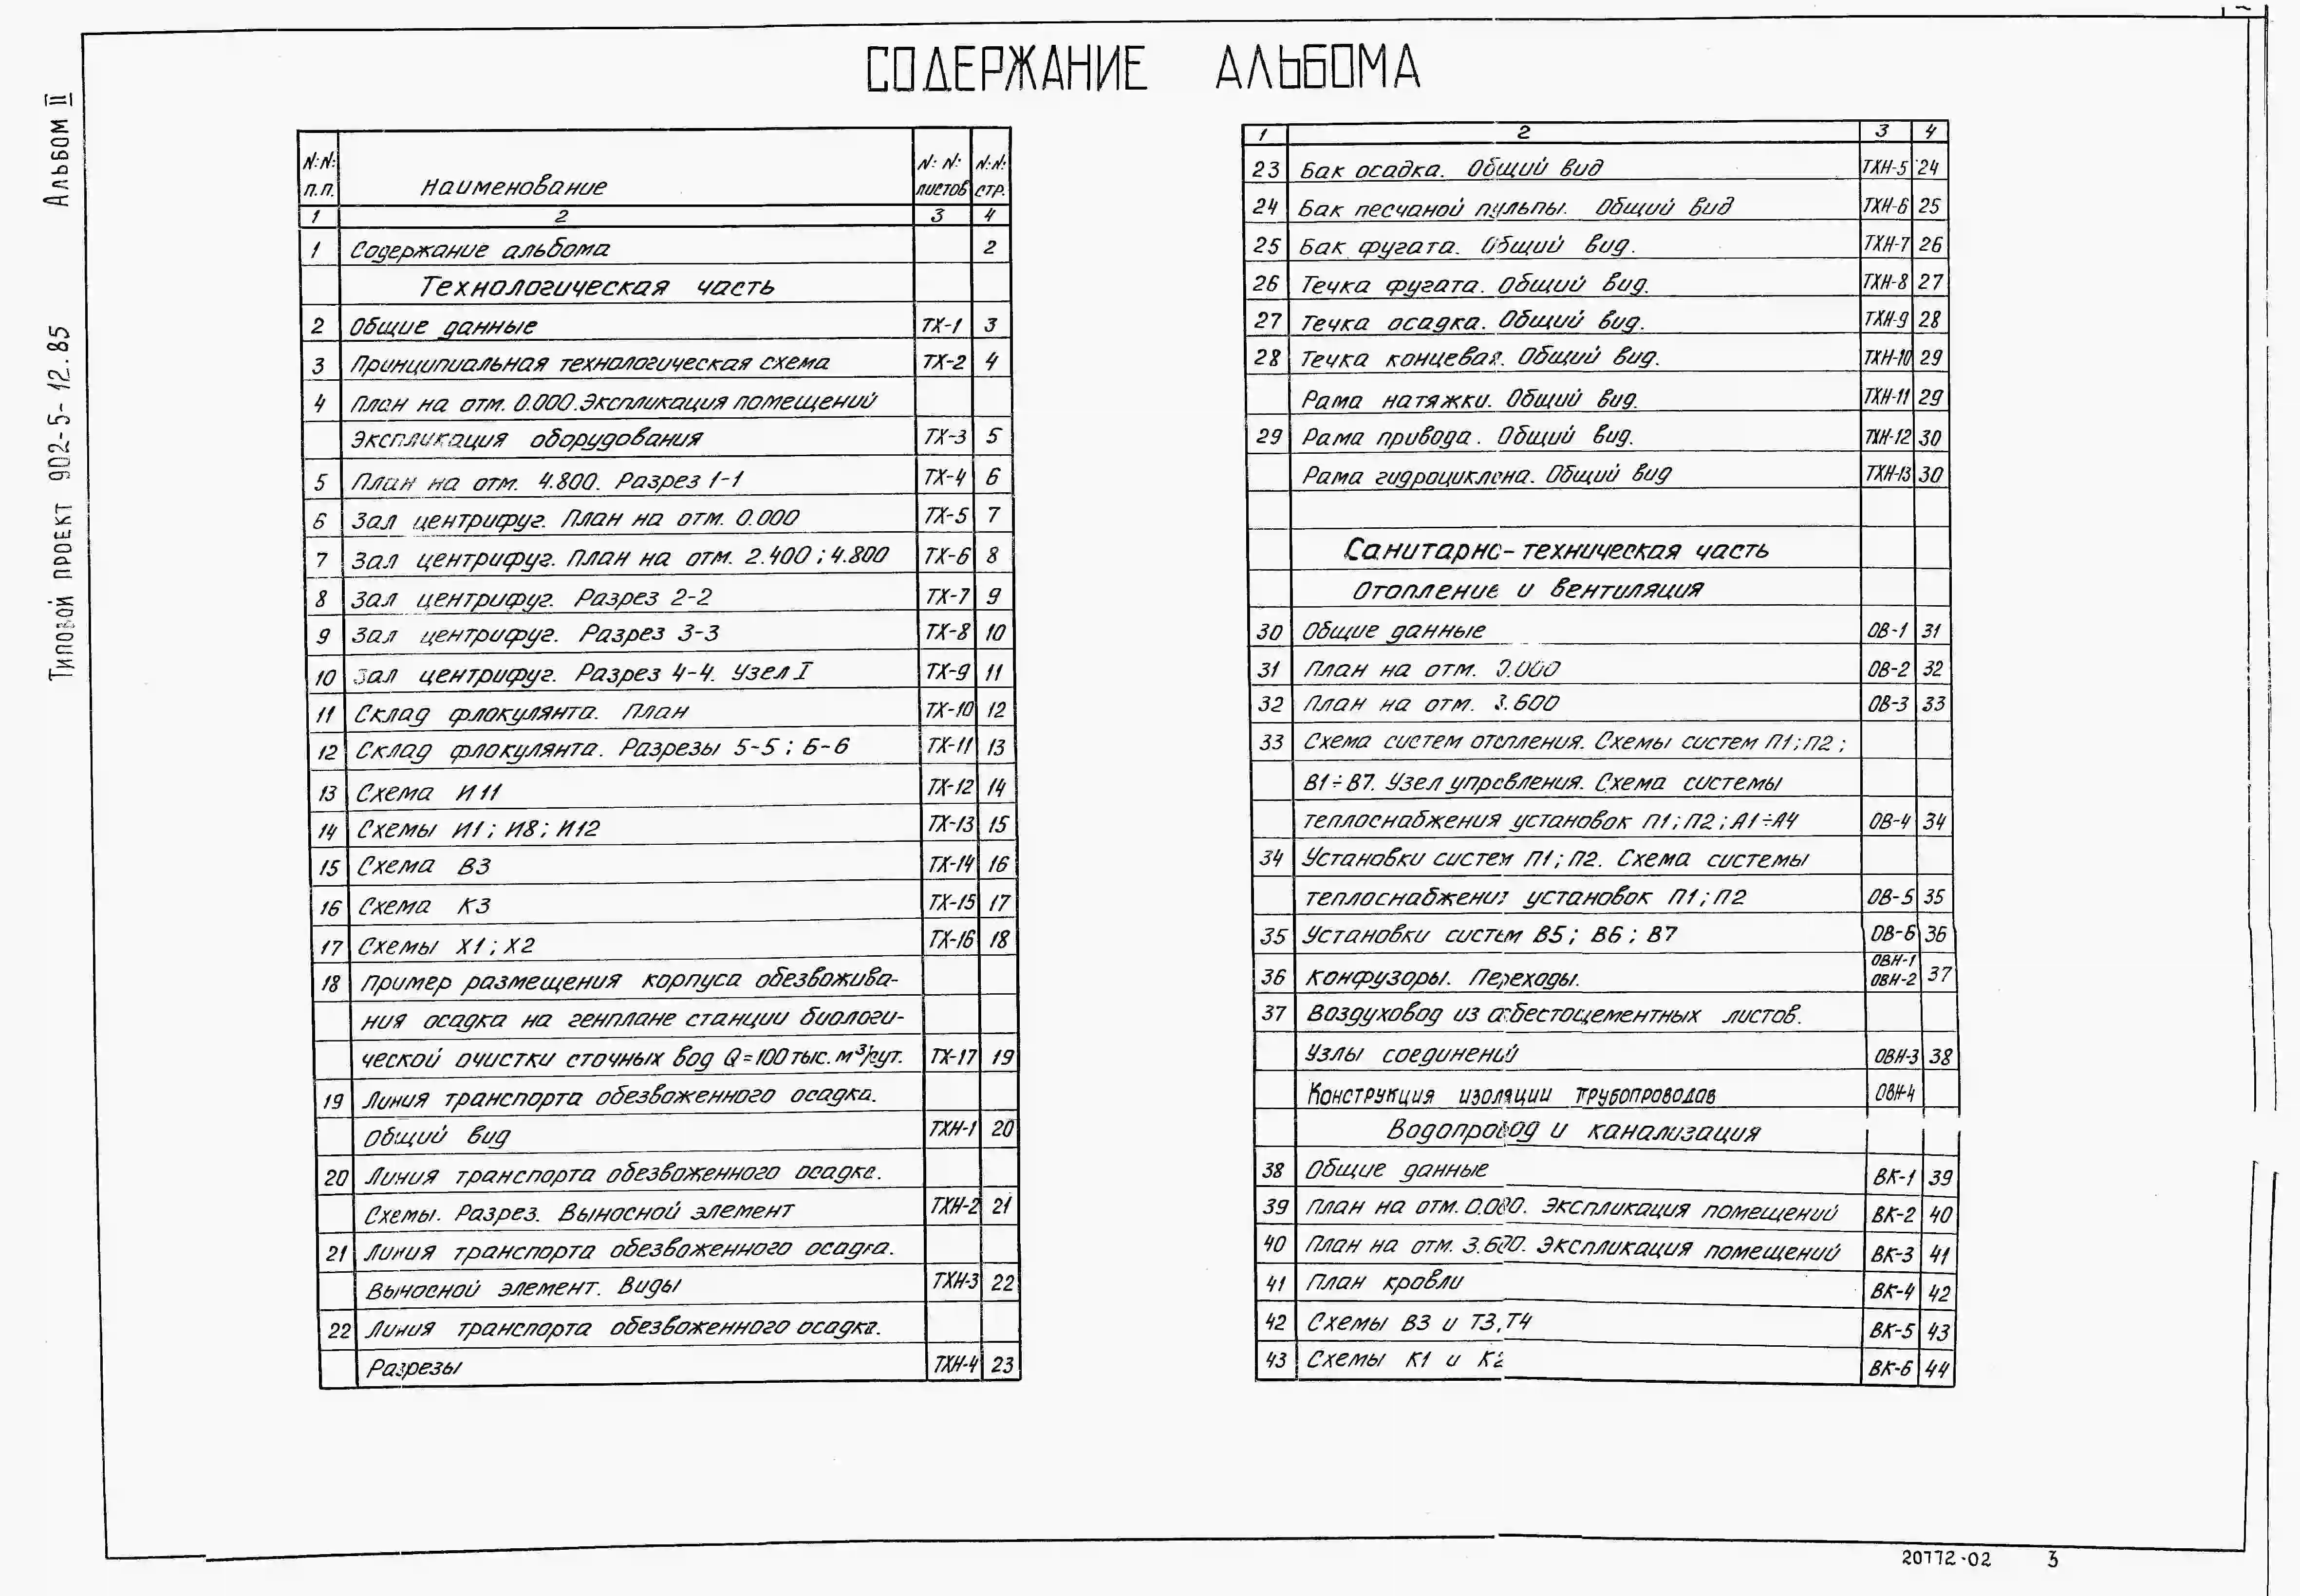 СОДЕРЖАНИЕ АЛЬБОМА
Альбом II
Типовой проект 902-5-12.85
N:N: п.п. Наименование N: N: листов N:N: стр.
1 2 3 4
1 Содержание альбома 2
Технологическая часть
2 Общие данные ТХ-1 3
3 Принципиальная технологическая схема ТХ-2 4
4 План на отм. 0.000. Экспликация помещений
Экспликация оборудования ТХ-3 5
5 План на отм. 4.800. Разрез 1-1 ТХ-4 6
6 Зал центрифуг. План на отм. 0.000 ТХ-5 7
7 Зал центрифуг. План на отм. 2.400; 4.800 ТХ-6 8
8 Зал центрифуг. Разрез 2-2 ТХ-7 9
9 Зал центрифуг. Разрез 3-3 ТХ-8 10
10 Зал центрифуг. Разрез 4-4. Узел I ТХ-9 11
11 Склад флокулянта. План ТХ-10 12
12 Склад флокулянта. Разрезы 5-5; 6-6 ТХ-11 13
13 Схема И11 ТХ-12 14
14 Схемы И1; И8; И12 ТХ-13 15
15 Схема В3 ТХ-14 16
16 Схема К3 ТХ-15 17
17 Схемы Х1; Х2 ТХ-16 18
18 Пример размещения корпуса обезвожива-
ния осадка на генплане станции биологи-
ческой очистки сточных вод Q=100 тыс. м³/сут. ТХ-17 19
19 Линия транспорта обезвоженного осадка.
Общий вид ТХН-1 20
20 Линия транспорта обезвоженного осадка.
Схемы. Разрез. Выносной элемент ТХН-2 21
21 Линия транспорта обезвоженного осадка.
Выносной элемент. Виды ТХН-3 22
22 Линия транспорта обезвоженного осадка.
Разрезы ТХН-4 23
1 2 3 4
23 Бак осадка. Общий вид ТХН-5 24
24 Бак песчаной пульпы. Общий вид ТХН-6 25
25 Бак фугата. Общий вид. ТХН-7 26
26 Течка фугата. Общий вид. ТХН-8 27
27 Течка осадка. Общий вид. ТХН-9 28
28 Течка концевая. Общий вид. ТХН-10 29
Рама натяжки. Общий вид. ТХН-11 29
29 Рама привода. Общий вид. ТХН-12 30
Рама гидроциклона. Общий вид ТХН-13 30
Санитарно-техническая часть
Отопление и вентиляция
30 Общие данные ОВ-1 31
31 План на отм. 0.000 ОВ-2 32
32 План на отм. 3.600 ОВ-3 33
33 Схема систем отопления. Схемы систем П1; П2;
В1÷В7. Узел управления. Схема системы
теплоснабжения установок П1; П2; А1÷А4 ОВ-4 34
34 Установки систем П1; П2. Схема системы
теплоснабжения установок П1; П2 ОВ-5 35
35 Установки систем В5; В6; В7 ОВ-6 36
36 Конфузоры. Переходы. ОВН-1 ОВН-2 37
37 Воздуховод из асбестоцементных листов.
Узлы соединений ОВН-3 38
Конструкция изоляции трубопроводов ОВН-4
Водопровод и канализация
38 Общие данные ВК-1 39
39 План на отм. 0.000. Экспликация помещений ВК-2 40
40 План на отм. 3.600. Экспликация помещений ВК-3 41
41 План кровли ВК-4 42
42 Схемы В3 и Т3, Т4 ВК-5 43
43 Схемы К1 и К2 ВК-6 44
20772-02 3